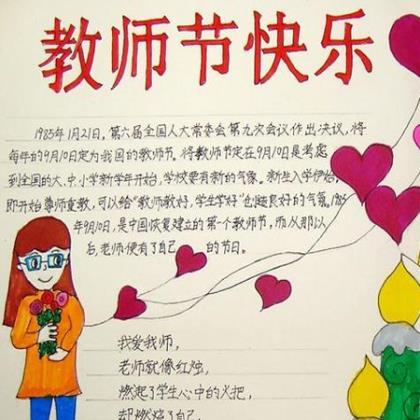 教师节快乐
1985年1月21日,第六届全国人大常委会第九次会议作出决议,将
每年的9月10日定为我国的教师节。将教师节定在9月10日是考虑
到全国的大、中、小学新学年开始,学校要有新的气象。新生入学伊始,
即开始尊师重教,可以给"教师教好,学生学好"创造良好的气氛。1985
年9月10日,是中国恢复建立的第一个教师节,而从那以
后,老师便有了自己 的节日。
我爱我师,
老师就像红烛,
燃起了学生心中的火把,
却燃烧了自己